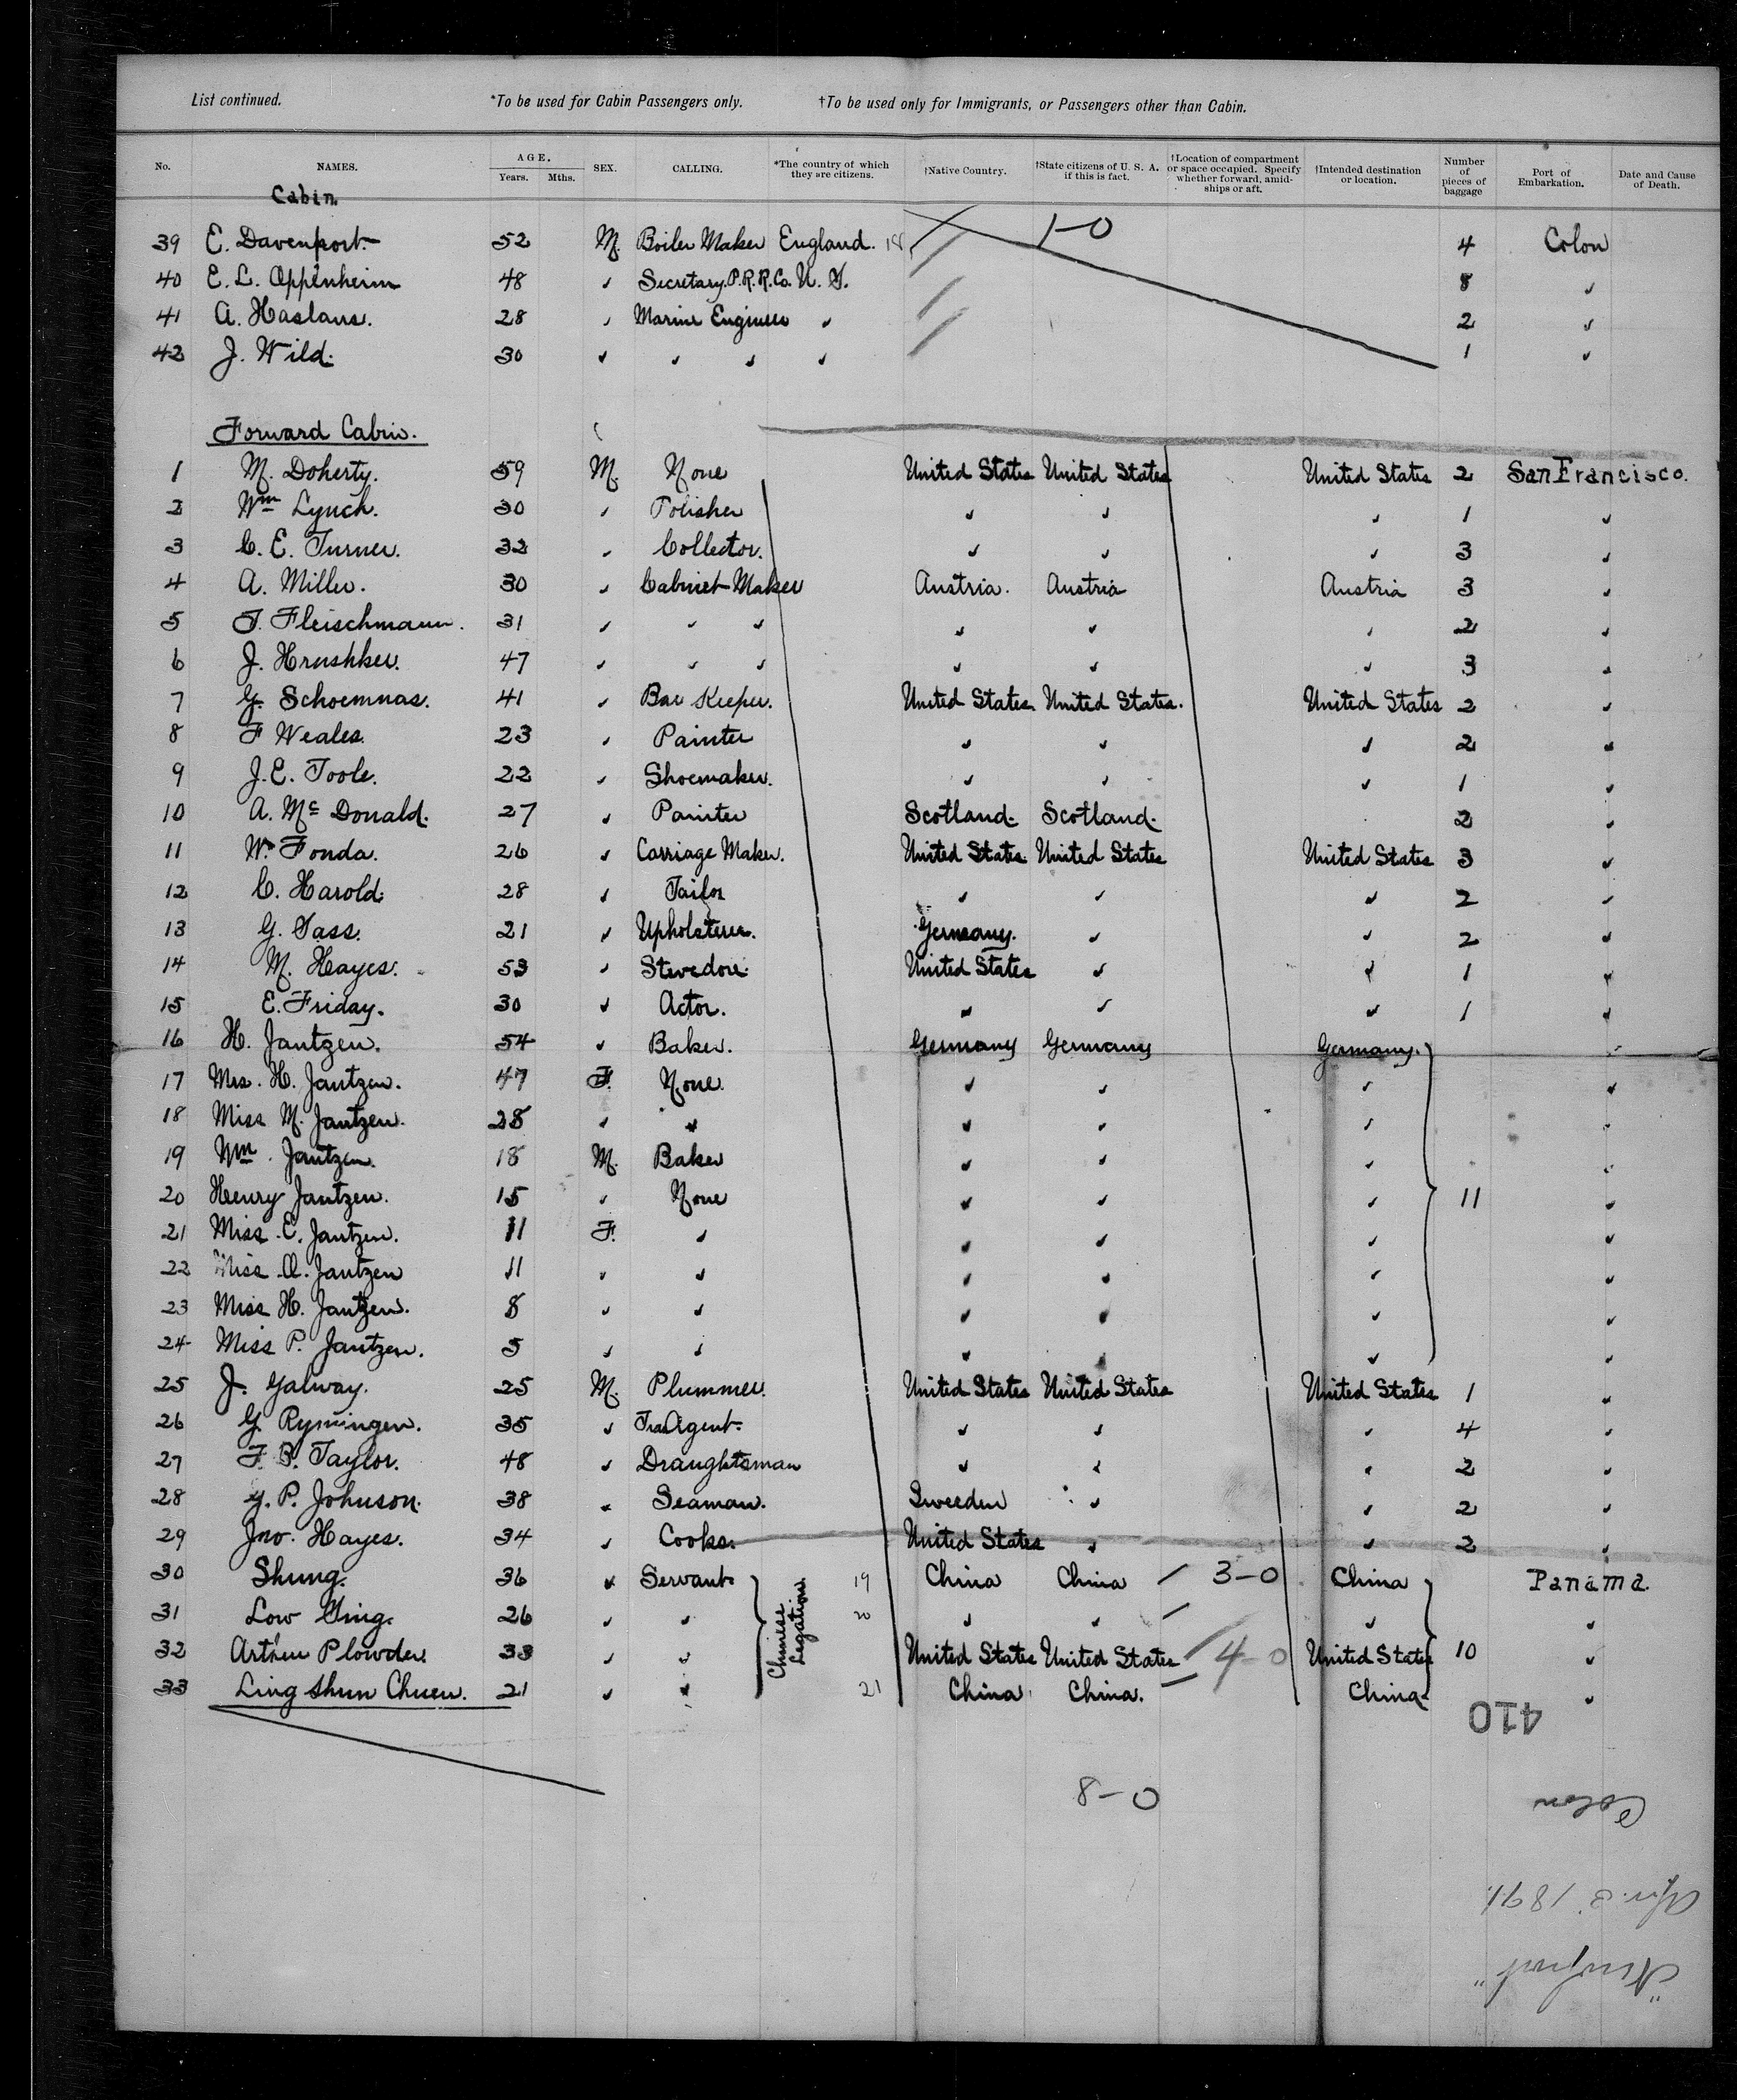 List continued. *To be used for Cabin Passengers only. †To be used only for Immigrants, or Passengers other than Cabin.
No. NAMES. AGE. Years. Mths. SEX. CALLING. *The country of which they are citizens. †Native Country. †State citizens of U. S. A. if this is fact. †Location of compartment or space occupied. Specify whether forward, amidships or aft. †Intended destination or location. Number of pieces of baggage Port of Embarkation. Date and Cause of Death.
Cabin
39 E. Davenport. 52 M. Boiler Maker England. 18 1-0 4 Colon
40 E. L. Oppenheim 48 ✓ Secretary. P.R.R.Co. U. S. 8 ✓
41 A. Haslans. 28 ✓ Marine Engineer ✓ 2 ✓
42 J. Wild. 30 ✓ ✓ ✓ ✓ 1 ✓
Forward Cabin.
1 M. Doherty. 59 M. None United States United States United States 2 San Francisco.
2 Wm Lynch. 30 ✓ Polisher ✓ ✓ ✓ 1 ✓
3 C. E. Turner. 32 ✓ Collector. ✓ ✓ ✓ 3 ✓
4 A. Miller. 30 ✓ Cabinet Maker Austria. Austria Austria 3 ✓
5 J. Fleischmann. 31 ✓ ✓ ✓ ✓ ✓ ✓ 2 ✓
6 J. Hrushker. 47 ✓ ✓ ✓ ✓ ✓ ✓ 3 ✓
7 G. Schoemnas. 41 ✓ Bar Keeper. United States United States. United States 2 ✓
8 F Weales. 23 ✓ Painter ✓ ✓ ✓ 2 ✓
9 J. E. Toole. 22 ✓ Shoemaker. ✓ ✓ ✓ 1 ✓
10 A. Mc Donald. 27 ✓ Painter Scotland. Scotland. 2 ✓
11 W. Fonda. 26 ✓ Carriage Maker. United States United States United States 3 ✓
12 C. Harold. 28 ✓ Tailor ✓ ✓ ✓ 2 ✓
13 G. Sass. 21 ✓ Upholsterer. Germany. ✓ ✓ 2 ✓
14 M. Hayes. 53 ✓ Stevedore. United States ✓ ✓ 1 ✓
15 E. Friday. 30 ✓ Actor. ✓ ✓ ✓ 1 ✓
16 H. Jantzen. 54 ✓ Baker. Germany Germany Germany. ✓
17 Mrs. H. Jantzen. 47 F. None. ✓ ✓ ✓ ✓
18 Miss M. Jantzen. 28 ✓ ✓ ✓ ✓ ✓ ✓
19 Wm. Jantzen. 18 M. Baker ✓ ✓ ✓ ✓
20 Henry Jantzen. 15 ✓ None ✓ ✓ ✓ 11 ✓
21 Miss E. Jantzen. 11 F. ✓ ✓ ✓ ✓ ✓
22 Miss A. Jantzen 11 ✓ ✓ ✓ ✓ ✓ ✓
23 Miss H. Jantzen. 8 ✓ ✓ ✓ ✓ ✓ ✓
24 Miss P. Jantzen. 5 ✓ ✓ ✓ ✓ ✓ ✓
25 J. Galway. 25 M. Plummer. United States United States United States 1 ✓
26 G. Rymingen. 35 ✓ Agent. ✓ ✓ ✓ 4 ✓
27 F. B. Taylor. 48 ✓ Draughtsman ✓ ✓ ✓ 2 ✓
28 G. P. Johnson. 38 ✓ Seaman. Sweeden ✓ ✓ 2 ✓
29 Jno. Hayes. 34 ✓ Cooks. United States ✓ ✓ 2 ✓
30 Shung. 36 ✓ Servant. Chinese Legation. 19 China China 3-0 China Panama.
31 Low Ging. 26 ✓ ✓ 20 ✓ ✓ ✓ ✓
32 Arthur Plowder. 33 ✓ ✓ United States United States 4-0 United States 10 ✓
33 Ling Shun Chuen. 21 ✓ ✓ 21 China China. China. ✓
410
8-0
Colon
Apr. 3. 1891.
"Newport"